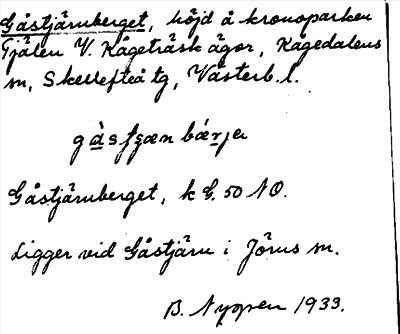 Gåstjärnberget, höjd å kronoparken
Tjälen V. Kågeträsk ägor, Kågedalens
sn, Skellefteå tg, Västerb. l.
Gåstjärnberget, k G. 50 NO.
Ligger vid Gåstjärn i Jörns sn.
B. Nyppen 1933.